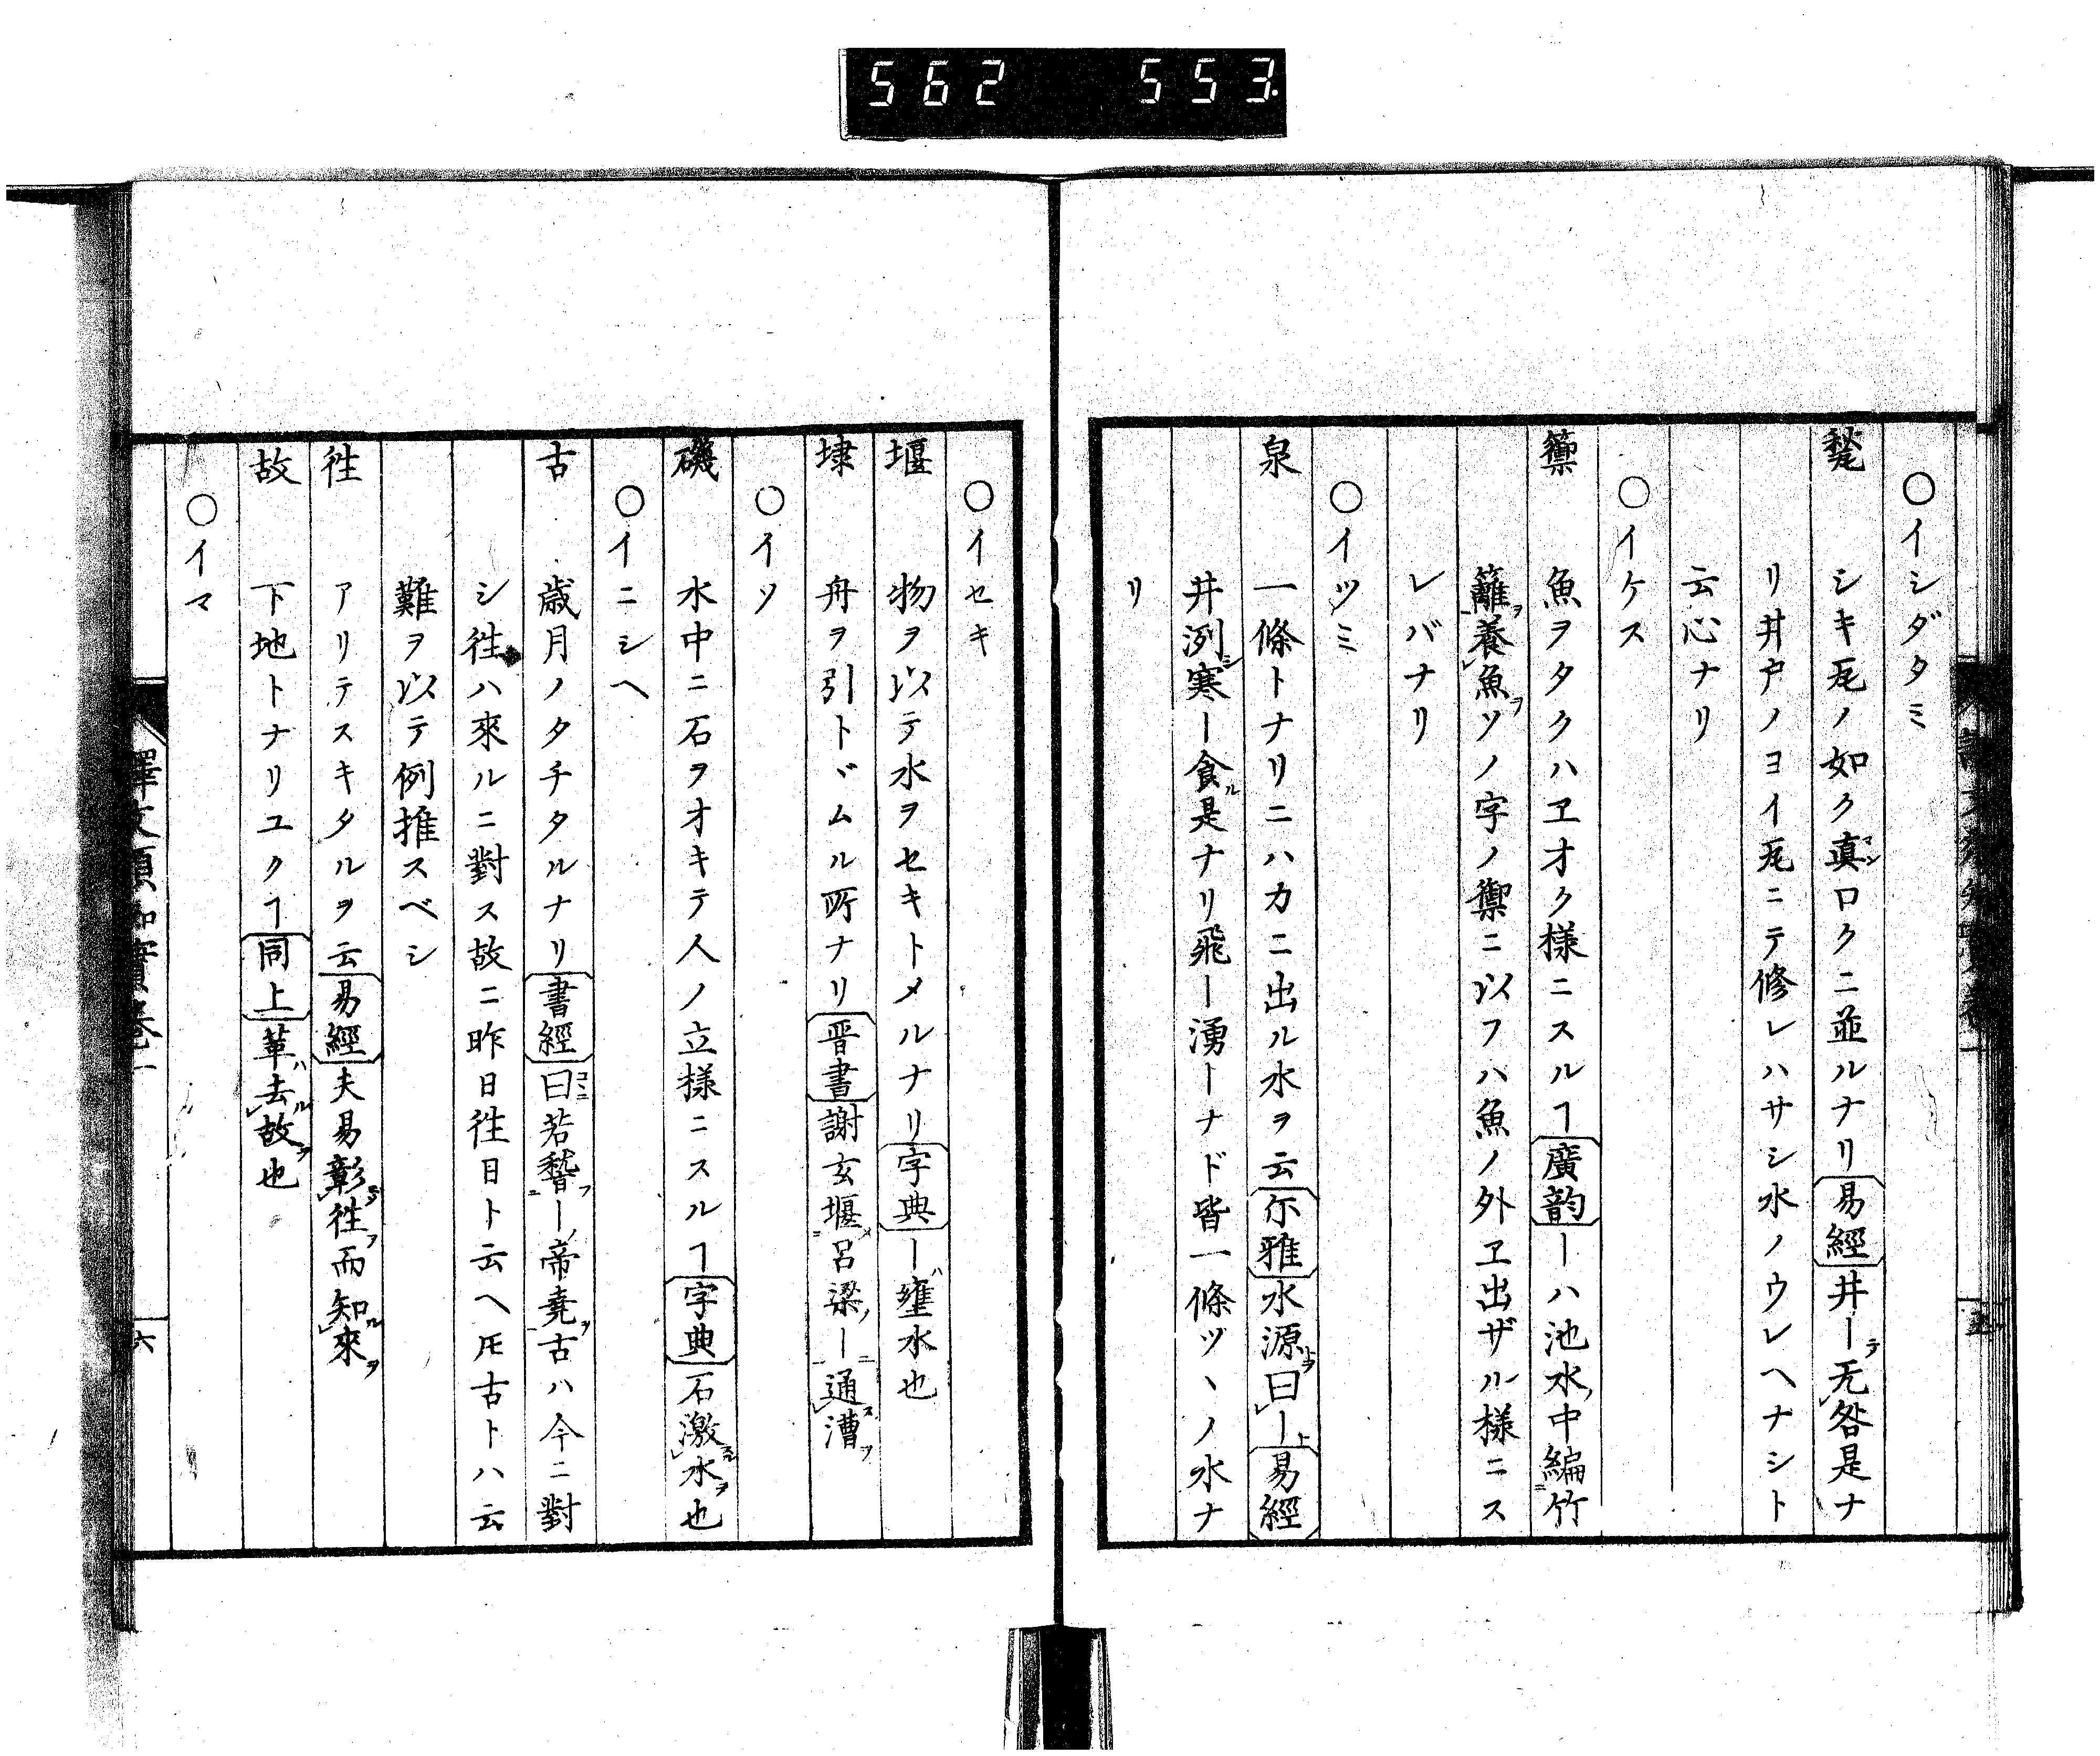 562 553
○イシダタミ
甃 シキ瓦ノ如ク真ロクニ並ルナリ易經井ー无咎是ナ
リ井戸ノヨイ瓦ニテ修レハサシ水ノウレヘナシト
云心ナリ
○イケス
籞 魚ヲタクハヱオク様ニスルヿ廣韵ーハ池水中編竹
籬養魚ソノ字ノ禦ニ以フハ魚ノ外ヱ出ザル様ニス
レバナリ
○イツミ
泉 一條トナリニハカニ出ル水ヲ云尓雅水源曰ー易經
井洌寒ー食是ナリ飛ー湧ーナド皆一條ヅヽノ水ナ
リ
○イセキ
堰 物ヲ以テ水ヲセキトメルナリ字典ー壅水也
埭 舟ヲ引トヾムル所ナリ晋書謝玄堰呂梁ー通漕
○イソ
磯 水中ニ石ヲオキテ人ノ立様ニスルヿ字典石激水也
○イニシヘ
古 歳月ノタチタルナリ書經曰若稽ー帝堯古ハ今ニ對
シ徃ハ來ルニ對ス故ニ昨日徃日ト云ヘ𪜈古トハ云
難ヲ以テ例推スベシ
徃 アリテスキタルヲ云易經夫易彰徃而知來
故 下地トナリユクヿ同上革去故也
○イマ
譯文須知實卷一
六